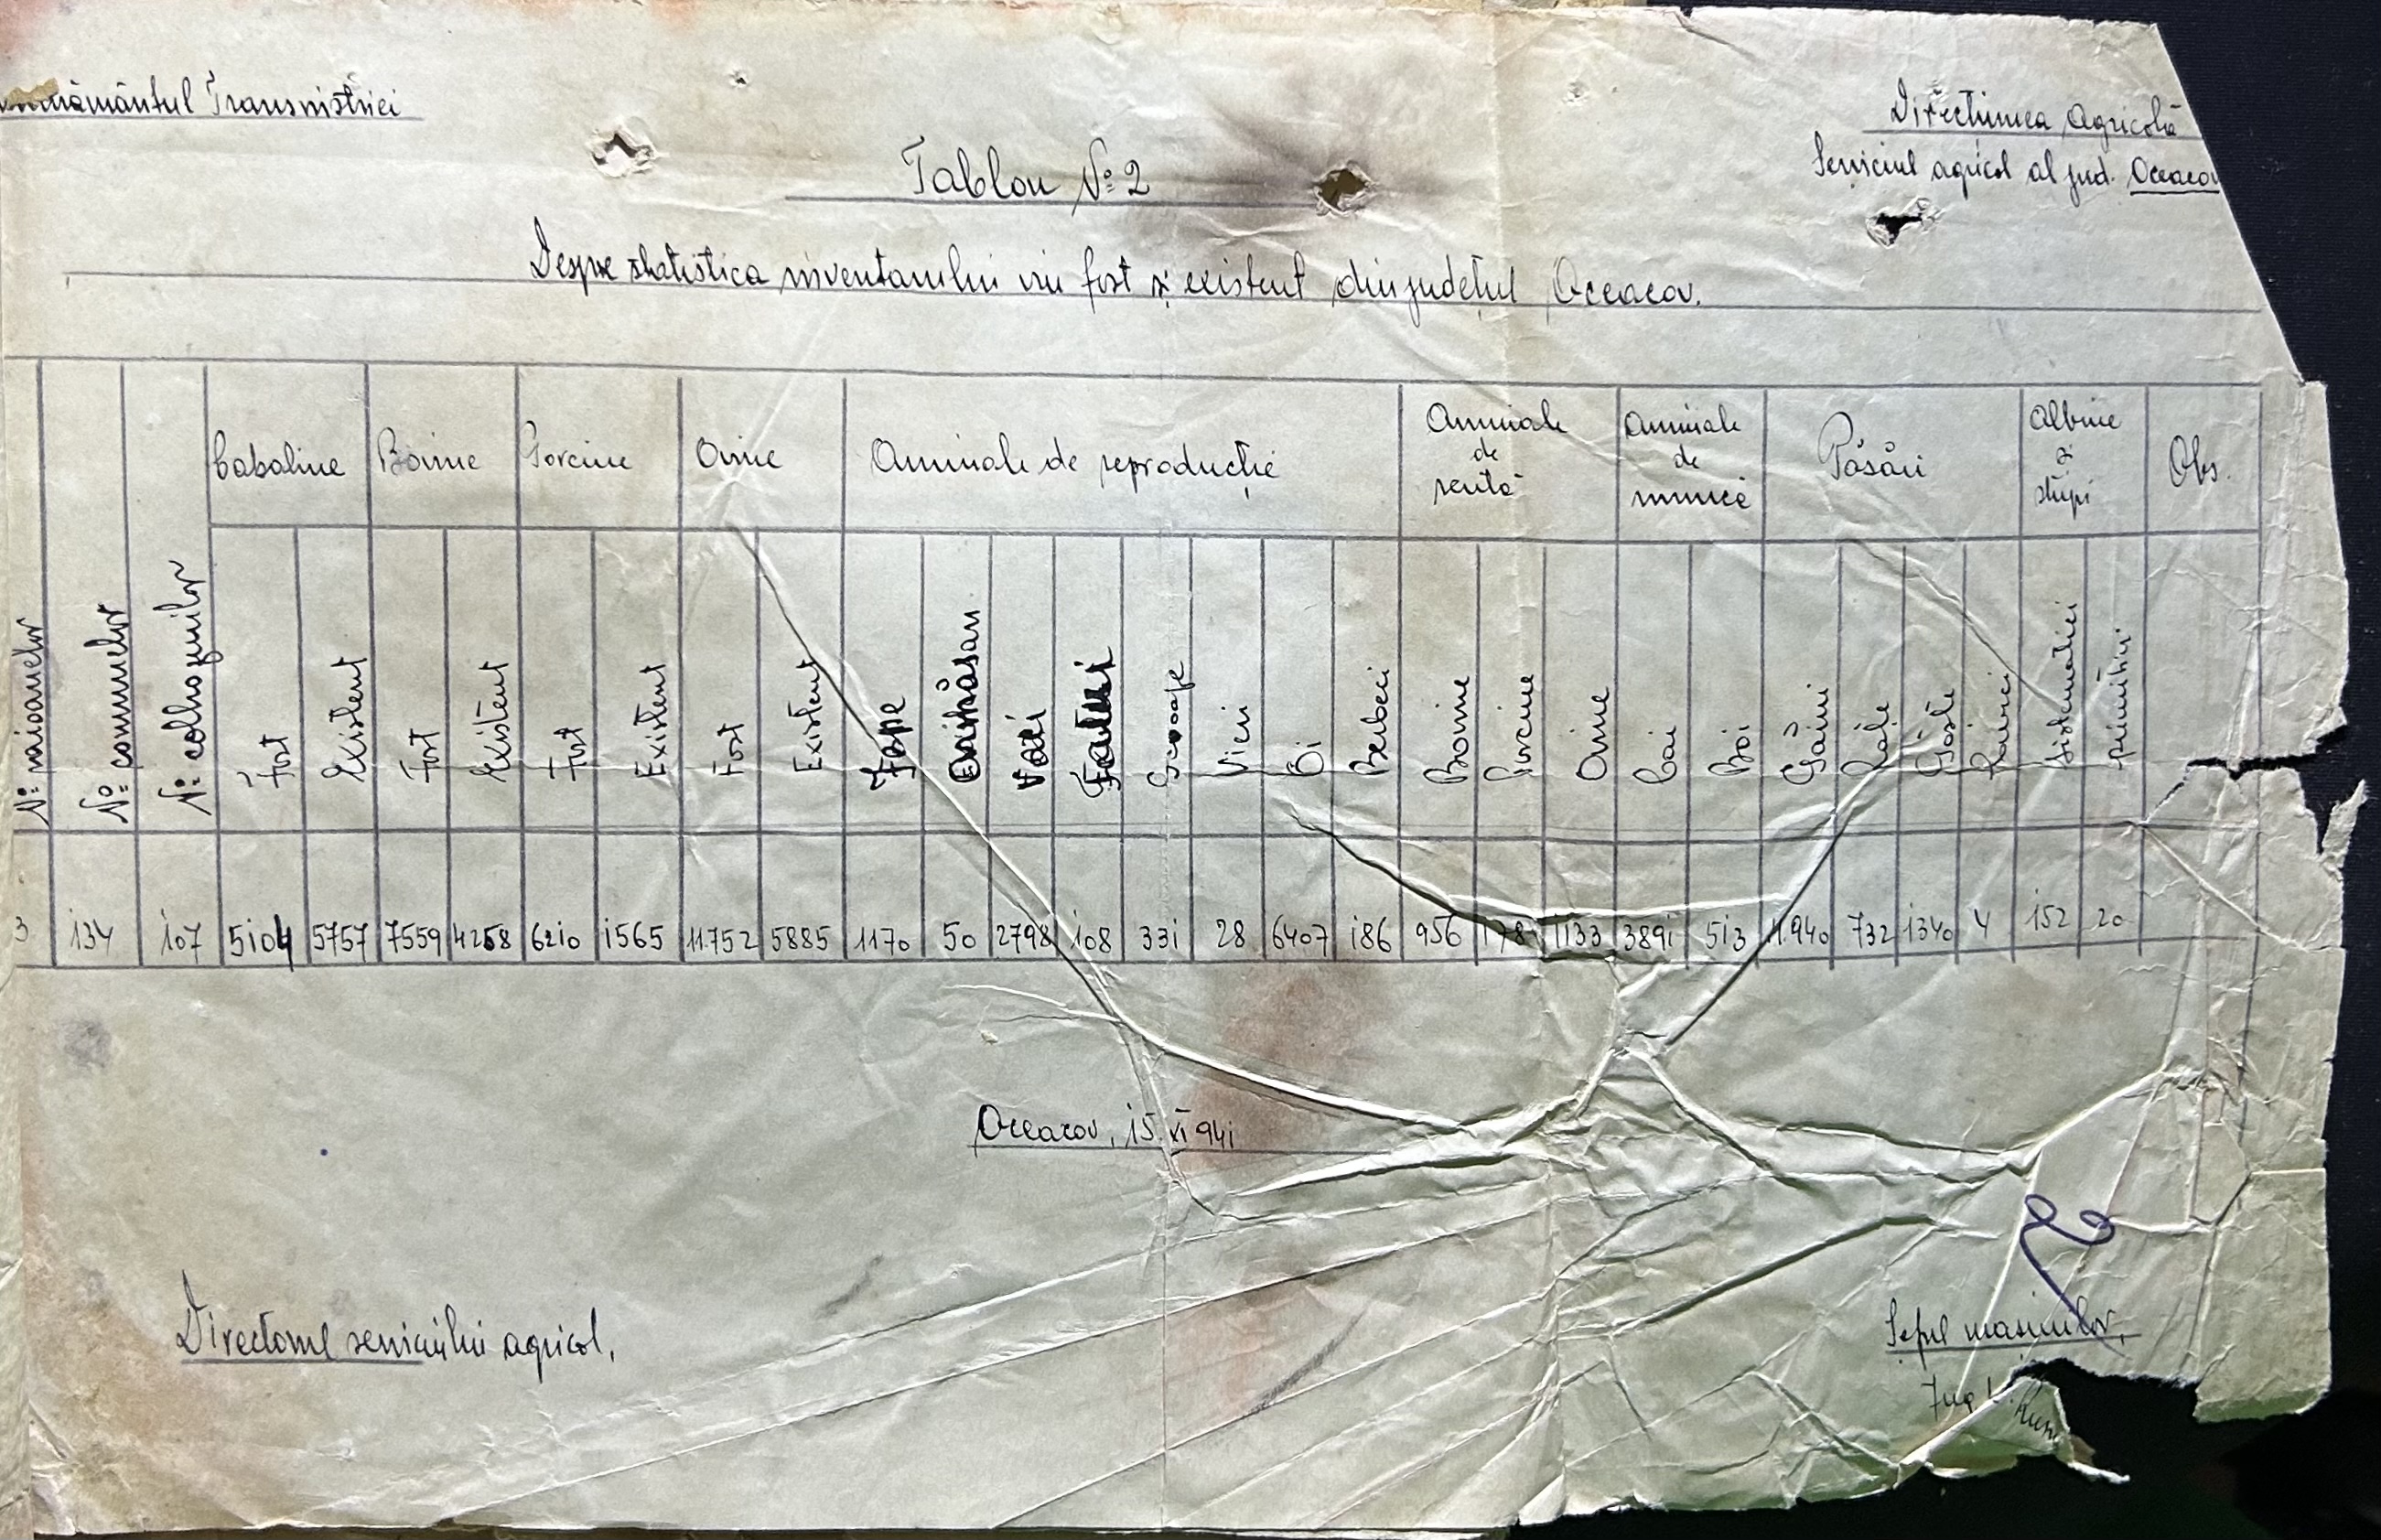 Transnistriei
Direcțiunea Agricolă
Serviciul agricol al jud. Oceacov
Tablou Nº 2
Despre statistica inventarului viu fost și existent din județul Oceacov.
Cabaline Bovine Porcine Ovine Animale de reproducție Animale de rentă Animale de muncă Păsări Albine și stupi Obs.
Nº raioanelor Nº comunelor Nº colhozurilor Fost Existent Fost Existent Fost Existent Fost Existent Iepe Armăsari Vaci Tauri Scroafe Vieri Oi Berbeci Bovine Porcine Ovine Cai Boi Găini Rațe Gâște Curci sistematici primitivi
3 134 107 5104 5757 7559 4258 6210 1565 11.752 5885 1170 50 2798 108 331 28 6407 186 956 1133 3891 513 11.940 732 1340 4 152 20
Oceacov, 15.XI 941
Directorul serviciului agricol,
Șeful mașinilor,
Ing.